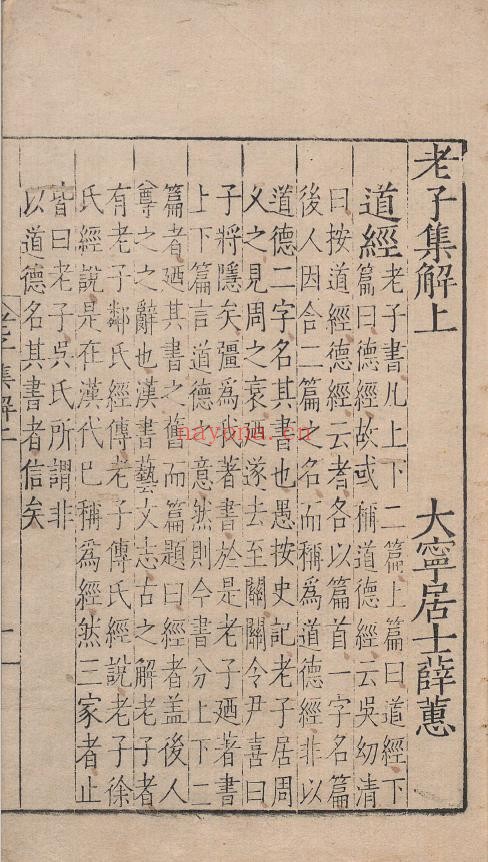 老子集解上
大寧居士薛蕙
道經老子書凡上下二篇上篇曰道經下
篇曰德經故或稱道德經云吳幼清
曰按道經德經云者各以篇首一字名篇
後人因合二篇之名而稱為道德經非以
道德二字名其書也愚按史記老子居周
乆之見周之衰廼遂去至關關令尹喜曰
子將隱矣彊為我著書於是老子廼著書
上下篇言道德之意然則今書分上下二
篇者廼其書之舊而篇題曰經者盖後人
尊之之辭也漢書藝文志古之解老子者
有老子鄰氏經傳老子傅氏經說老子徐
氏經說是在漢代已稱為經然三家者止
皆曰老子吳氏所謂非
以道德名其書者信矣
老子集解上
一
nayona.cn